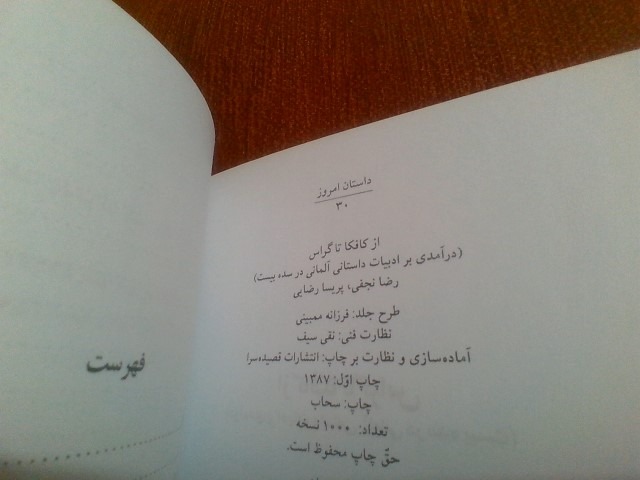 داستان امروز
۳۰
از کافکا تا گراس
(درآمدی بر ادبیات داستانی آلمانی در سده بیست)
رضا نجفی، پریسا رضایی
طرح جلد: فرزانه ممبینی
نظارت فنی: نقی سیف
آماده‌سازی و نظارت بر چاپ: انتشارات قصیده‌سرا
چاپ اوّل: ۱۳۸۷
چاپ: سحاب
تعداد: ۱۰۰۰ نسخه
حقّ چاپ محفوظ است.
فهرست